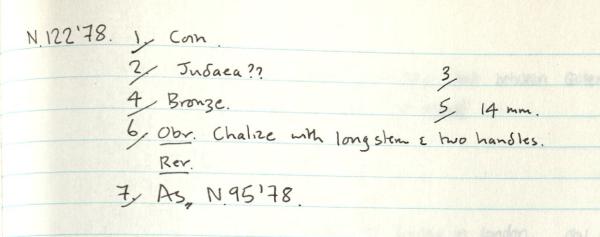 N.122'78. 1, Coin.
2, Judaea?? 3,
4, Bronze. 5, 14 mm.
6, Obv. Chalize with long stem & two handles.
Rev.
7, As, N.95'78.